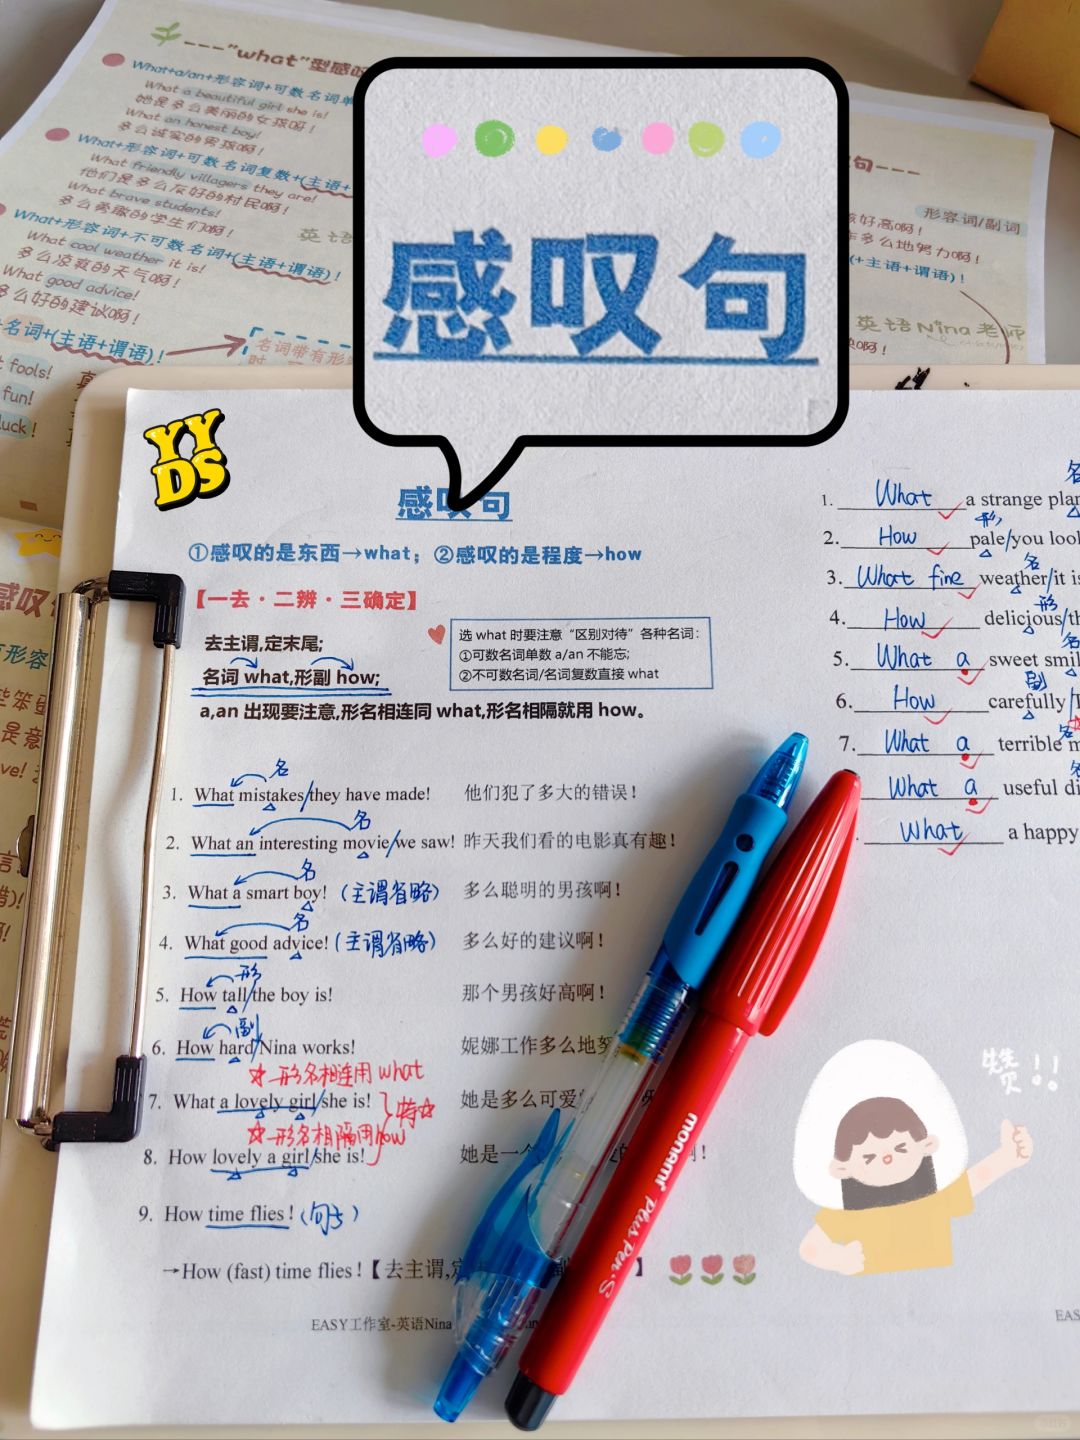 ---"what"型感叹
What+a/an+形容词+可数名词单
What a beautiful girl she is!
她是多么美丽的女孩呀!
What an honest boy!
多么诚实的男孩啊!
What+形容词+可数名词复数+(主语+
What friendly villagers they are!
他们是多么友好的村民啊!
What brave students!
多么勇敢的学生们啊!
What+形容词+不可数名词+(主语+谓语)!
What cool weather it is!
多么凉爽的天气啊!
What good advice!
多么好的建议啊!
名词+(主语+谓语)!
fools!
fun!
luck!
名词带有形
英语
句---
形容词/副词
好高啊!
多么地努力啊!
+主语+谓语)!
英语Nina老师
啊!
感叹句
YYDS
感叹句
①感叹的是东西→what; ②感叹的是程度→how
【一去·二辨·三确定】
去主谓,定末尾;
名词 what,形副 how;
a,an 出现要注意,形名相连同 what,形名相隔就用 how。
选 what 时要注意“区别对待”各种名词:
①可数名词单数 a/an 不能忘;
②不可数名词/名词复数直接 what
名
1. What mistakes/they have made! 他们犯了多大的错误!
名
2. What an interesting movie/we saw! 昨天我们看的电影真有趣!
名
3. What a smart boy! (主谓省略) 多么聪明的男孩啊!
名
4. What good advice! (主谓省略) 多么好的建议啊!
形
5. How tall/the boy is! 那个男孩好高啊!
副
6. How hard/Nina works! 妮娜工作多么地努
☆形名相连用 what
7. What a lovely girl/she is! 她是多么可爱
☆形名相隔用how
8. How lovely a girl/she is! 她是一个
9. How time flies! (句子)
→How (fast) time flies!【去主谓,定
EASY工作室-英语Nina
名
1. What a strange plan
形
2. How pale/you look
名
3. What fine weather/it is
形
4. How delicious/th
名
5. What a sweet smil
副
6. How carefully/
名
7. What a terrible m
名
What a useful di
What a happy
赞!!
monami Plus Pen S
EAS